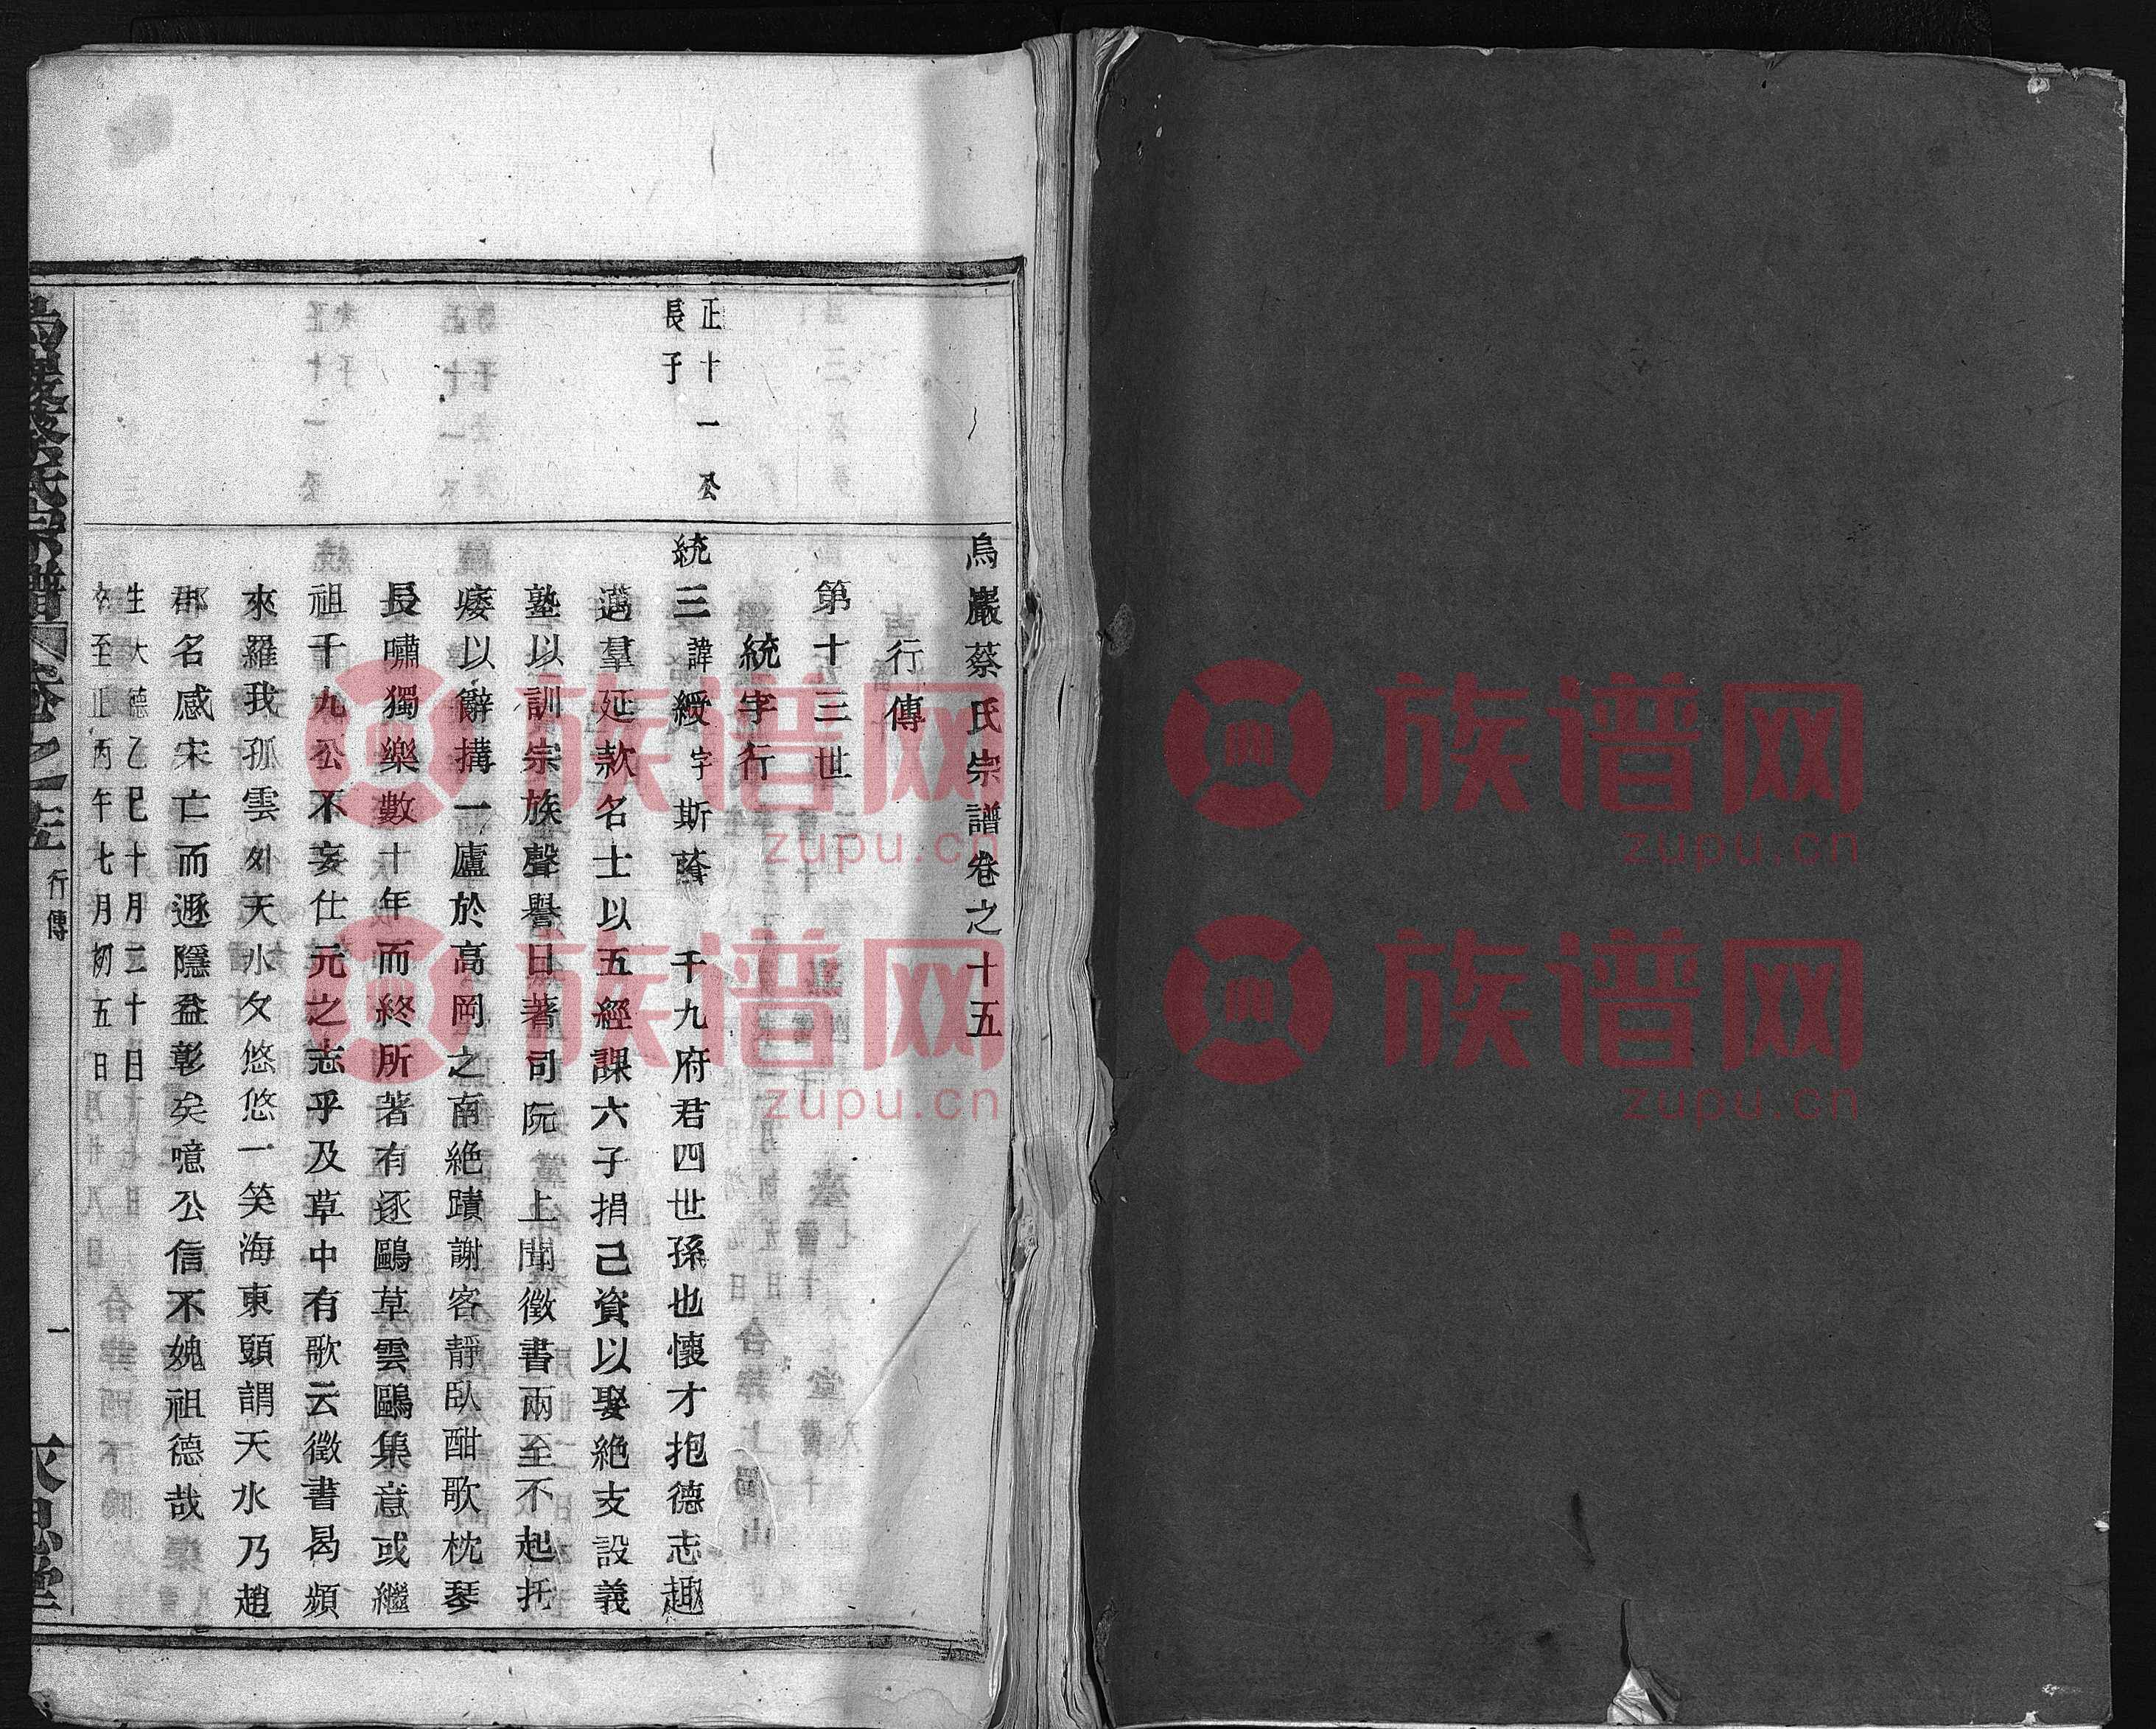 烏巖蔡氏宗譜卷之十五
行傳
第十三世
統字行
正十一公
長子
統三諱綬字斯蔭 千九府君四世孫也懷才抱德志趣
邁羣延款名士以五經課六子捐己資以娶絕支設義
塾以訓宗族聲譽日著司阮上聞徵書兩至不起托
痿以辭搆一廬於高岡之南絕蹟謝客靜臥酣歌枕琴
長嘯獨樂數十年而終所著有逐鷗草雲鷗集意或繼
祖千九公不妄仕元之志乎及草中有歌云徵書曷頻
來羅我孤雲外天水夕悠悠一笑海東頭謂天水乃趙
郡名感宋亡而遯隱益彰矣噫公信不媿祖德哉
生大德乙巳十月二十日
卒至正丙午七月初五日
烏巖蔡氏宗譜 卷之十五 行傳 一 永思堂
族谱网
zupu.cn
族谱网
zupu.cn
族谱网
zupu.cn
族谱网
zupu.cn